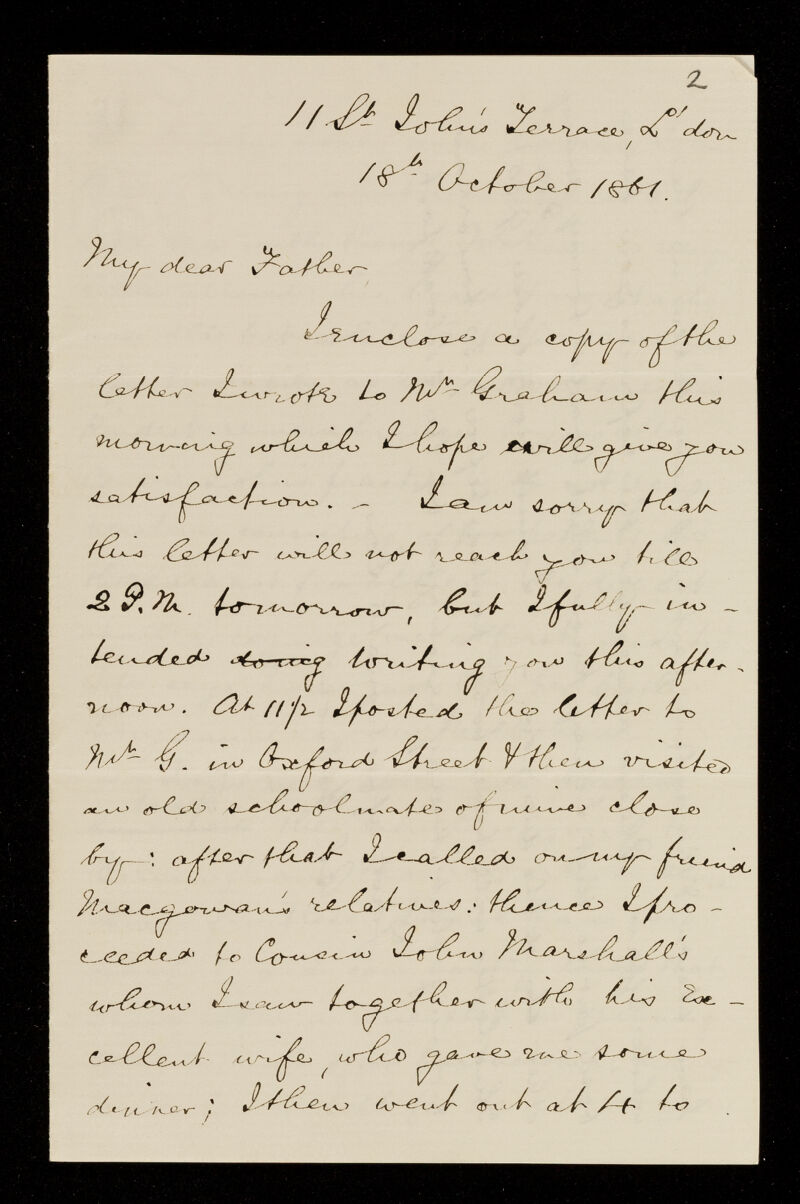 2
11 St. John's Terrace, L'don
18th October 1861.
My dear Father,
I enclose a copy of the
letter I wrote to Mr. Graham this
morning which I hope will give you
satisfaction. - I am sorry that
this letter will not reach you till
2 P.M. tomorrow, but I fully in-
tended doing writing you this after-
noon. At 11 1/2 I posted the letter to
Mr. G. in Oxford Street & then visited
an old schoolmate of mine close
by: after that I called on my friend
Macgowan's relatives: thence I pro-
ceeded to Cousin John Marshall's
whom I saw together with his Ex-
cellent wife, who gave me some
dinner; I then went out at 4 to